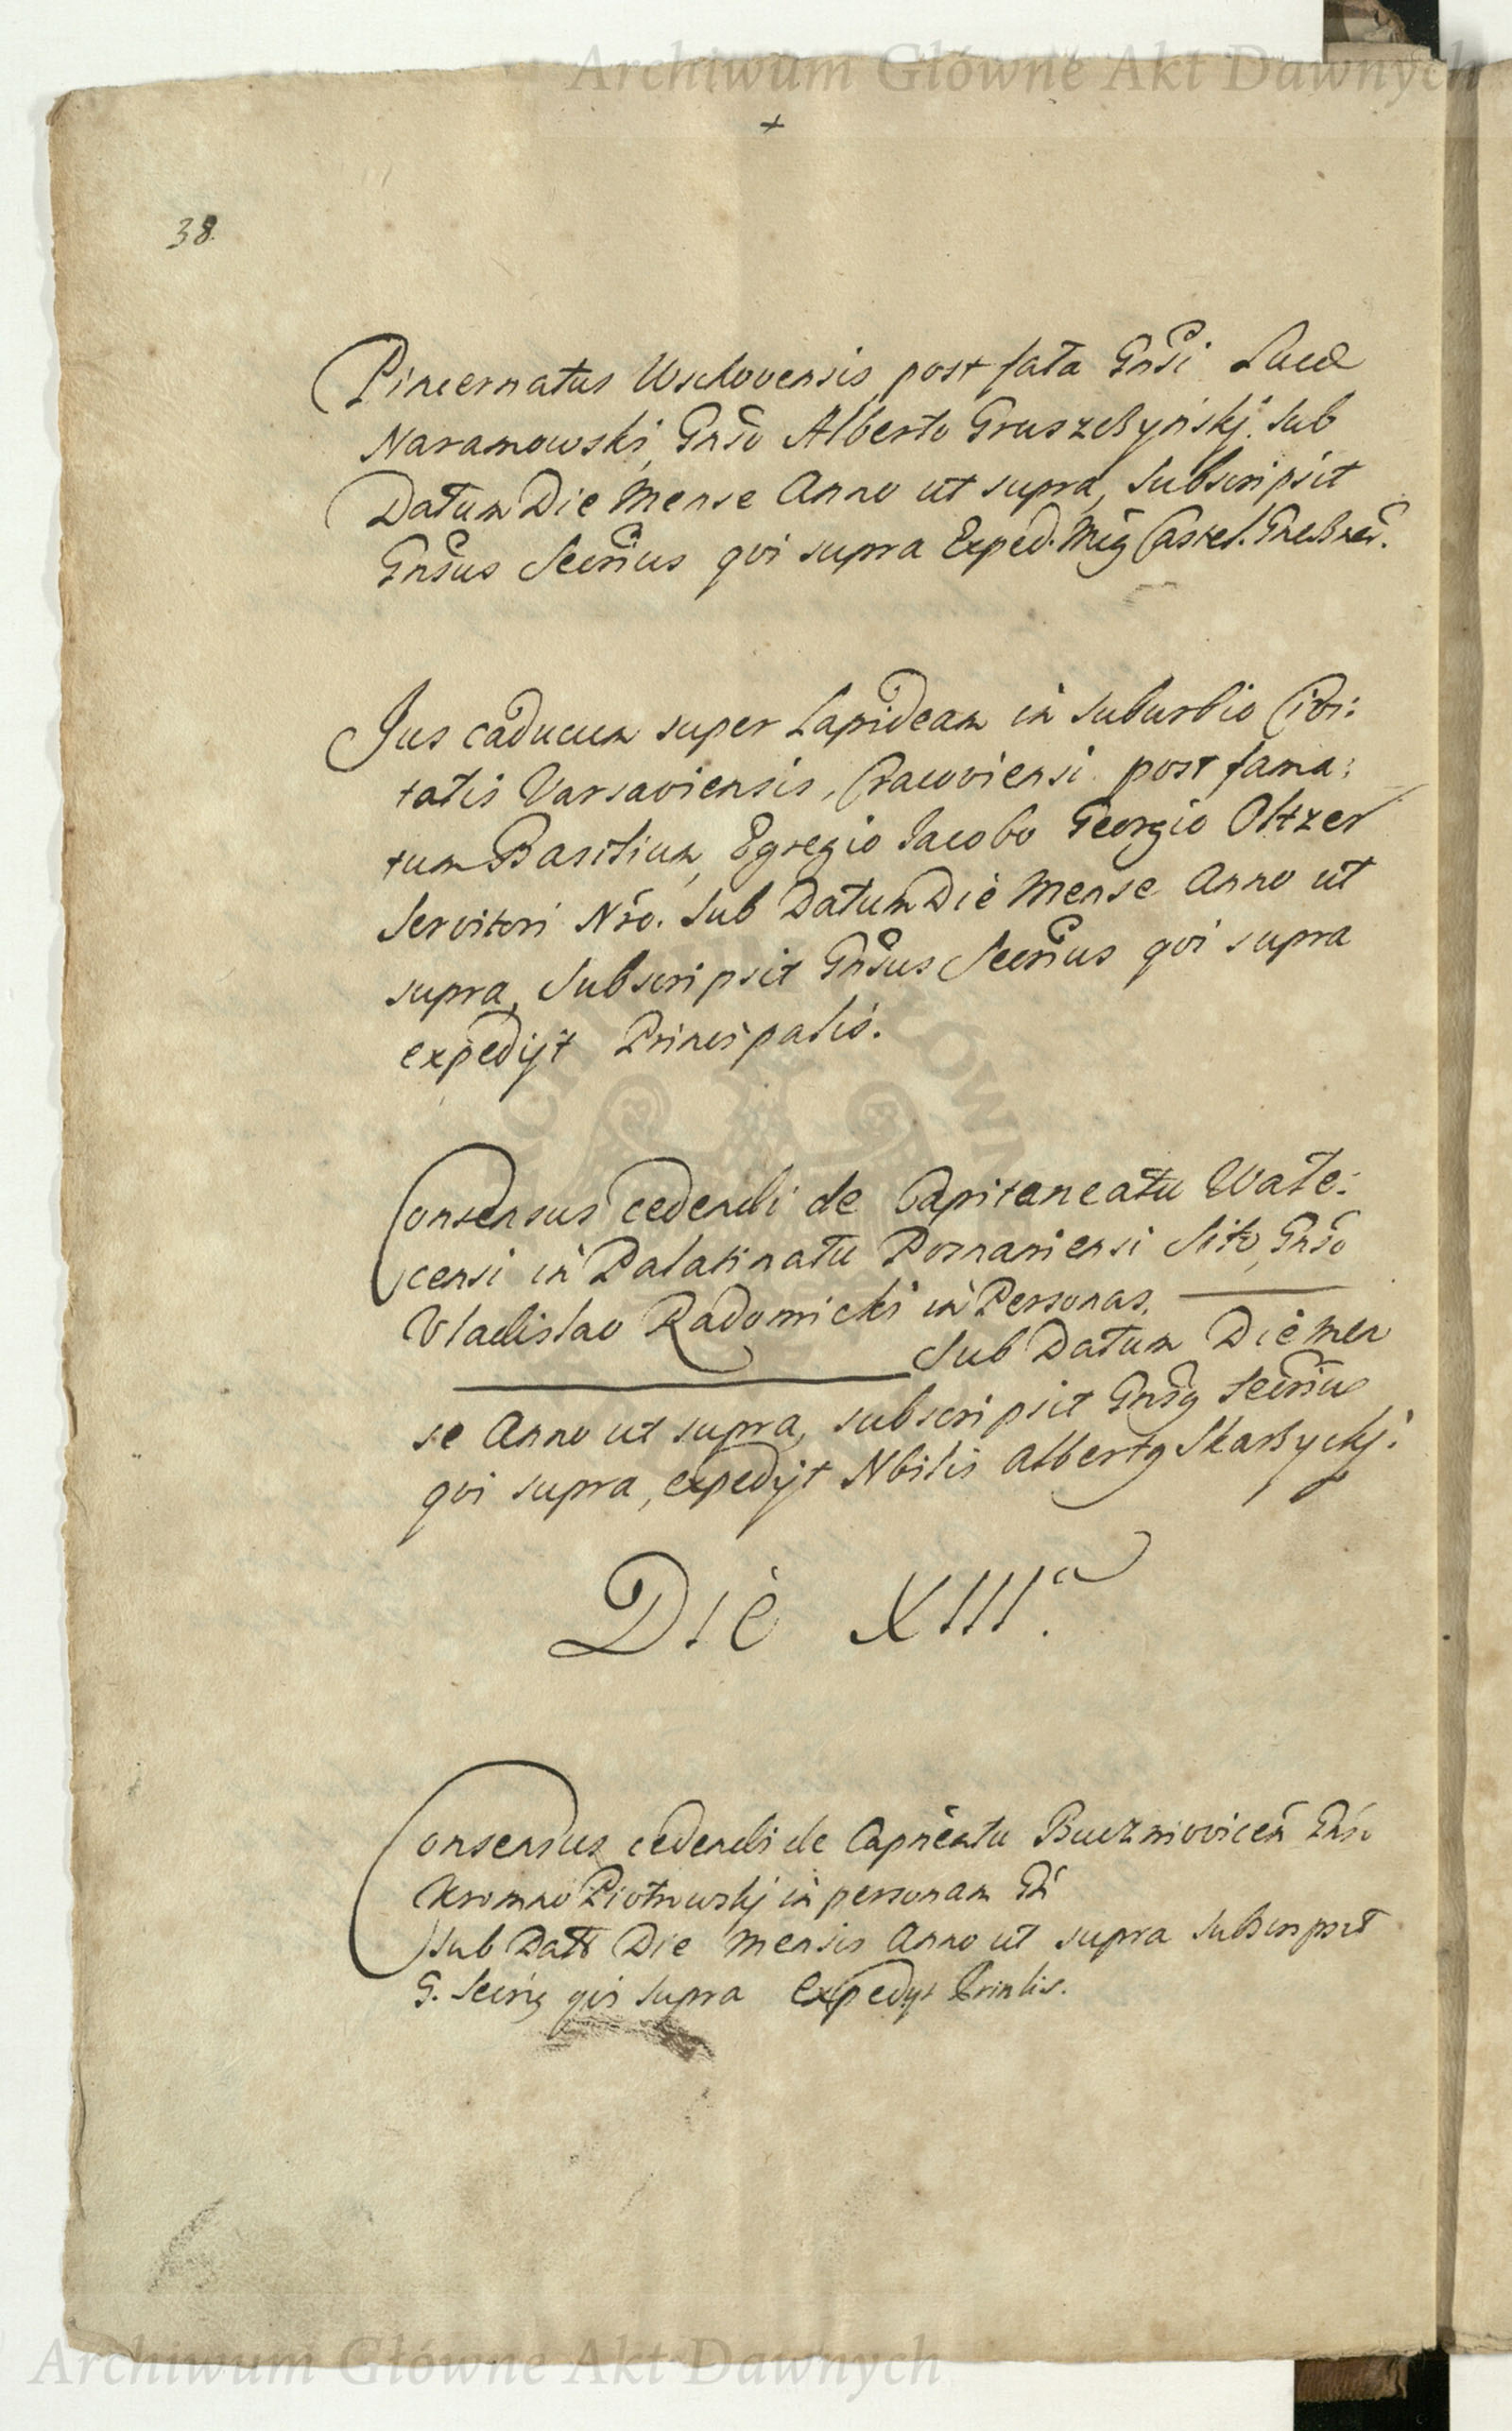 Archiwum Główne Akt Dawnych
+
38.
Pincernatus Wschovensis, post fata Gnsi Lucæ
Naramowski, Gnso Alberto Gruszczynskj. Sub
Datum Die Mense Anno ut supra, Subscripsit
Gnsus Secrius qvi supra Exped. Castel.
Jus caducum super Lapideam in suburbio Civi:
tatis Varsaviensis, Cracoviensi post fama:
tum Basilium, Egregio Jacobo Georgio Oltzer
Servitori Nro. Sub Datum Die Mense Anno ut
supra, Subscripsit Gnsus Secrius qvi supra
expedijt Principalis.
Consensus cedendi de Capitaneatu Wale:
censi in Palatinatu Posnaniensi Sito, Gnso
Vladislao Radomicki in Personas.
Sub Datum Die Men
se Anno ut supra, subscripsit Gnsq Secrius
qvi supra, expedijt Nbilis Albertq Skarszyckj.
Die XIII.a
Consensus cedendi de Capneatu Gnso
Piotrowskj in personam Gn
Sub Datt Die Mensis Anno ut supra Subscripsit
G. Secriq qvi supra Expedyt Prinlis.
Archiwum Główne Akt Dawnych